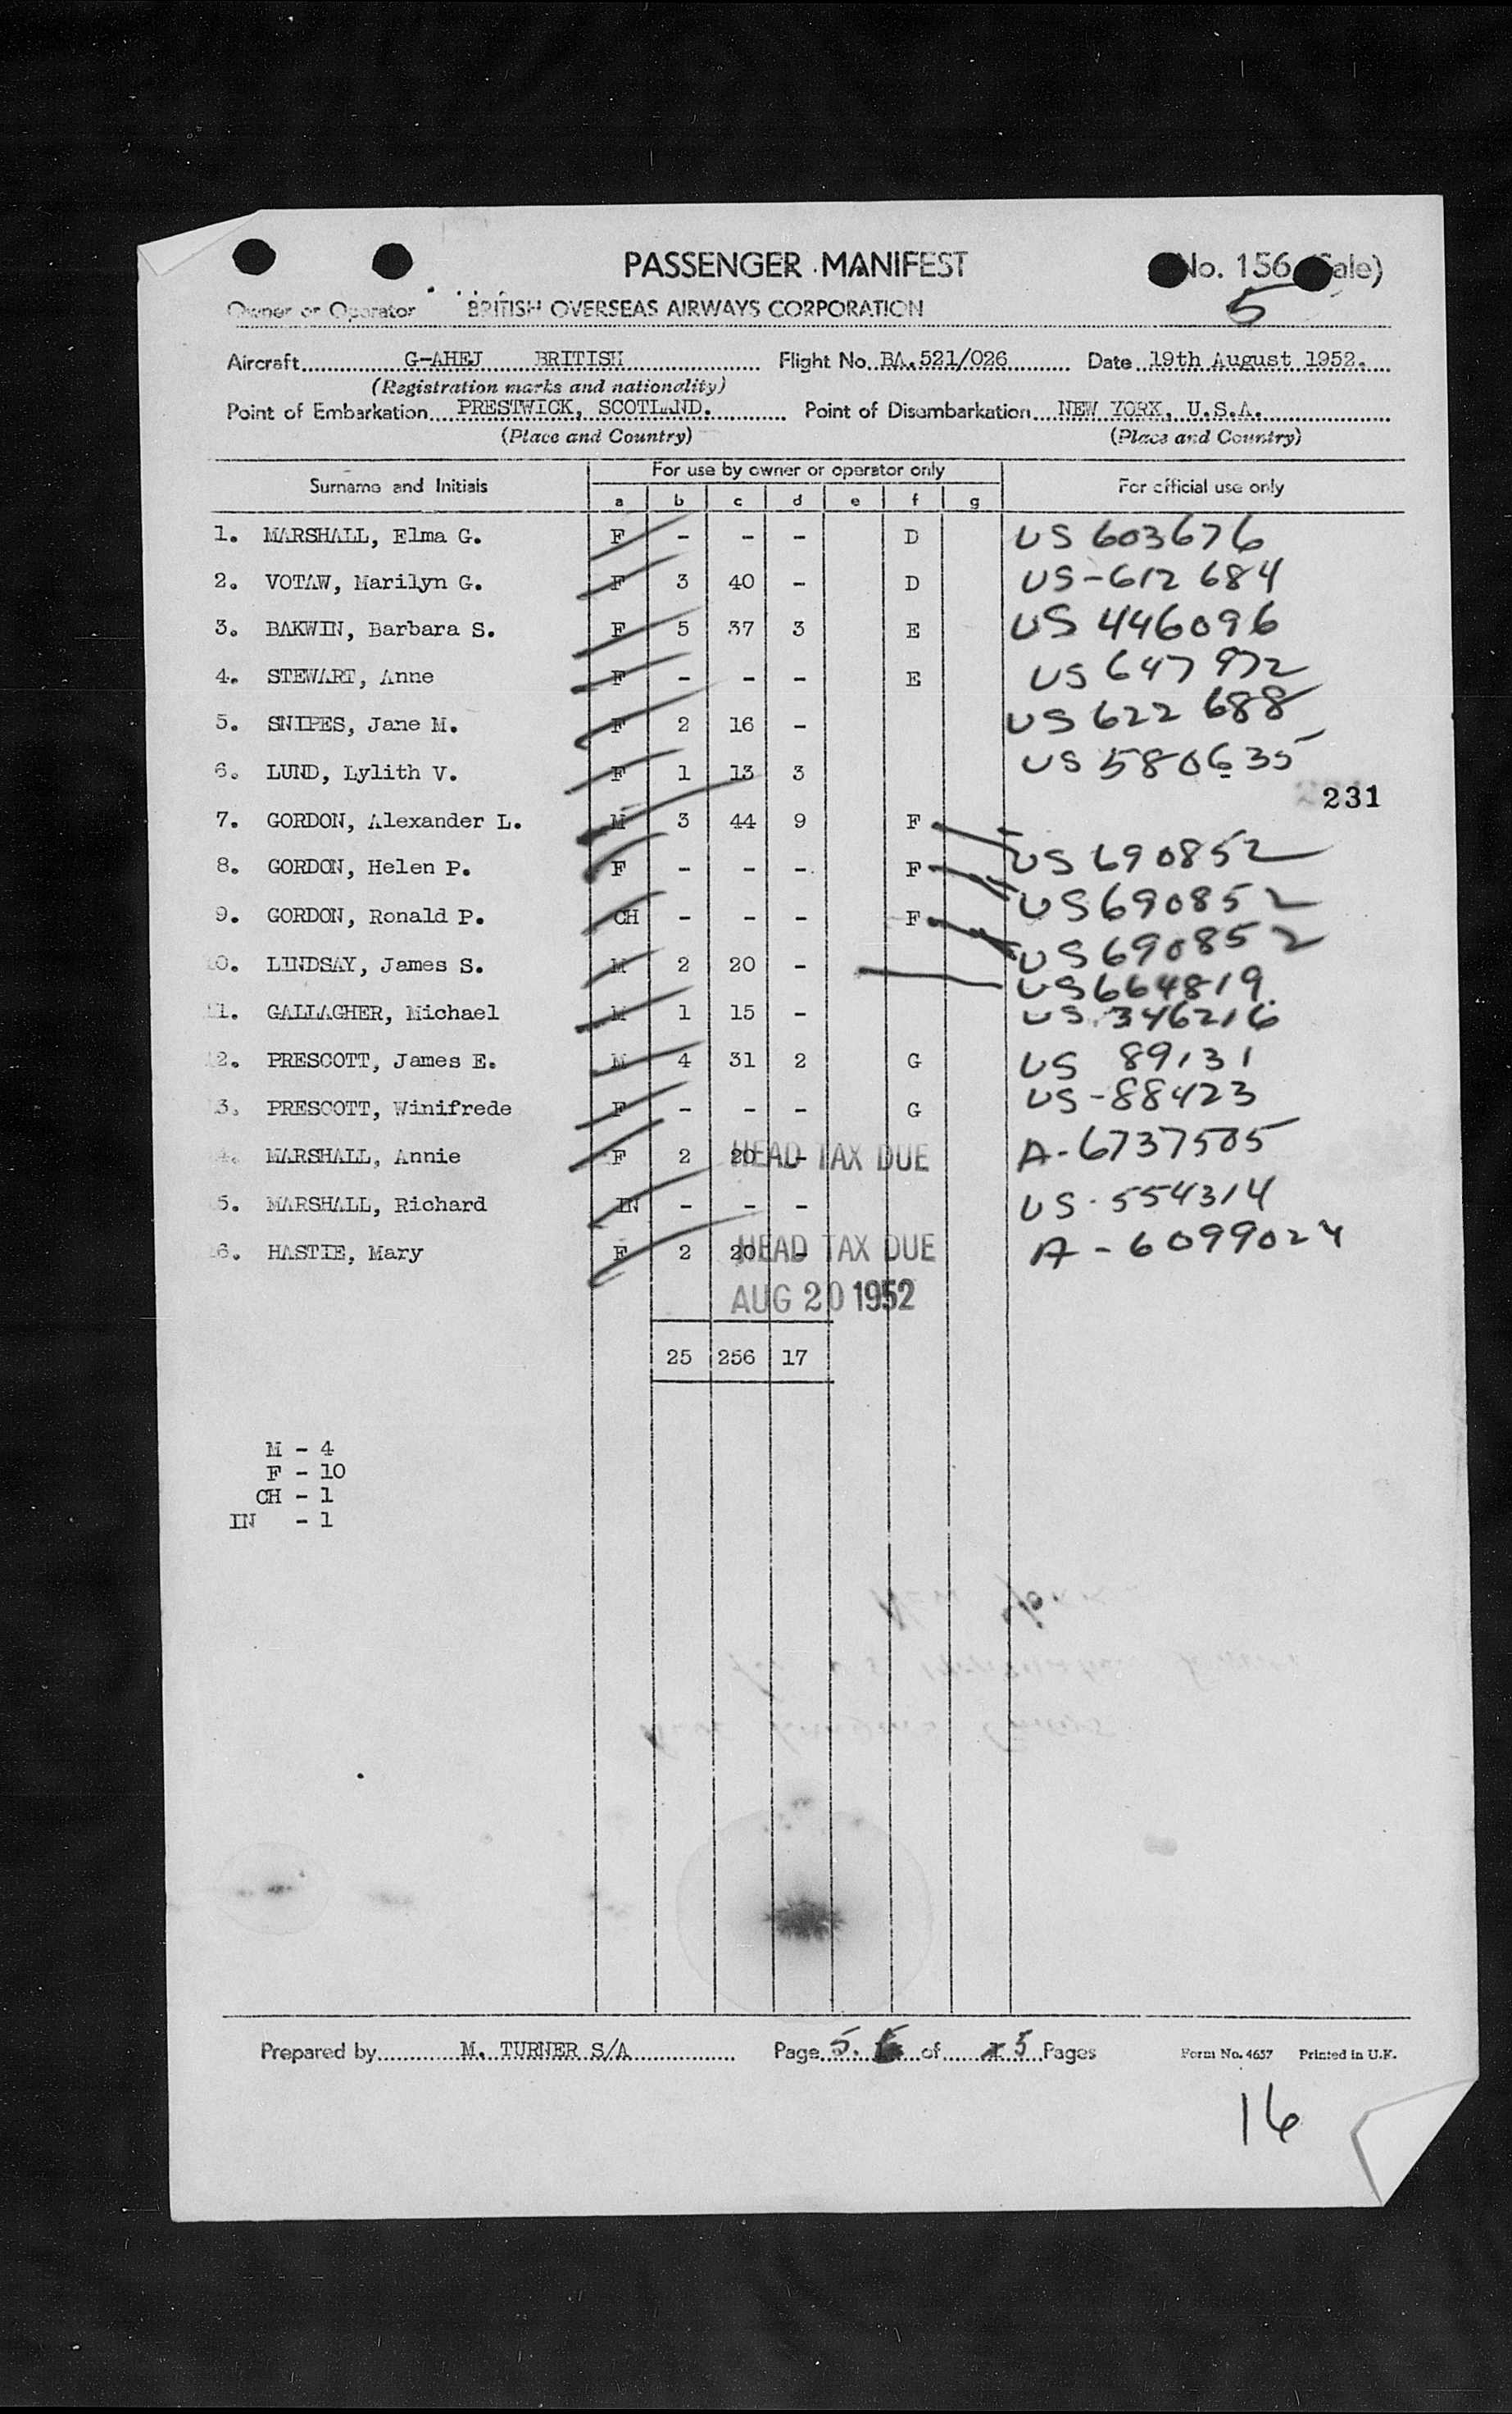 PASSENGER MANIFEST
No. 156 (Sale)
5
Owner or Operator BRITISH OVERSEAS AIRWAYS CORPORATION
Aircraft G-AHEJ BRITISH Flight No. BA.521/026 Date 19th August 1952.
(Registration marks and nationality)
Point of Embarkation PRESTWICK, SCOTLAND. Point of Disembarkation NEW YORK, U.S.A.
(Place and Country) (Place and Country)
Surname and Initials For use by owner or operator only For official use only
a b c d e f g
1. MARSHALL, Elma G. F - - - D US 603676
2. VOTAW, Marilyn G. F 3 40 - D US-612 684
3. BAKWIN, Barbara S. F 5 37 3 E US 446096
4. STEWART, Anne F - - - E US 647 972
5. SNIPES, Jane M. F 2 16 - US 622 688
6. LUND, Lylith V. F 1 13 3 US 580635
231
7. GORDON, Alexander L. M 3 44 9 F US 690852
8. GORDON, Helen P. F - - - F US 690852
9. GORDON, Ronald P. CH - - - F US 690852
10. LINDSAY, James S. M 2 20 - US 664819
11. GALLAGHER, Michael M 1 15 - US. 346216
12. PRESCOTT, James E. M 4 31 2 G US 89131
13. PRESCOTT, Winifrede F - - - G US-88423
14. MARSHALL, Annie F 2 20 - HEAD TAX DUE A-6737505
15. MARSHALL, Richard IN - - - US-554314
16. HASTIE, Mary F 2 20 - HEAD TAX DUE A-6099024
AUG 20 1952
25 256 17
M - 4
F - 10
CH - 1
IN - 1
Prepared by M. TURNER S/A Page 5. of 5 Pages Form No. 4657 Printed in U.K.
16